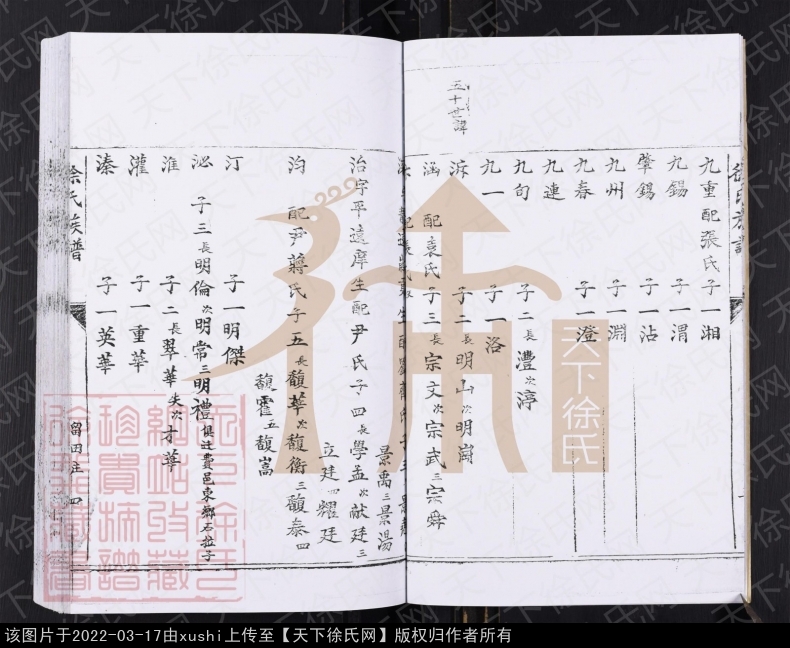 五十世諱
九重配張氏子一湘
九錫 子一渭
肇錫 子一沾
九州 子一淵
九春 子一澄
九連
九旬 子二長灃次渟
九一 子一洛
泝 子二明山次明崗
涵 配袁氏子三長宗文次宗武三宗舜
景禹三景湯
治字平遠庠生配尹氏子四長學孟次献廷三
立廷四耀廷
汮 配尹蔣氏子五長馥華次馥衡三馥泰四
馥霍五馥嵩
汀 子一明傑
沁 子三長明倫次明常三明禮俱迁費邑東鄉石拉子
淮 子二長翠華失次才華
灌 子一重華
溱 子一英華
徐氏族譜
留田庄 四
天下徐氏
天下徐氏网
该图片于2022-03-17由xushi上传至【天下徐氏网】版权归作者所有